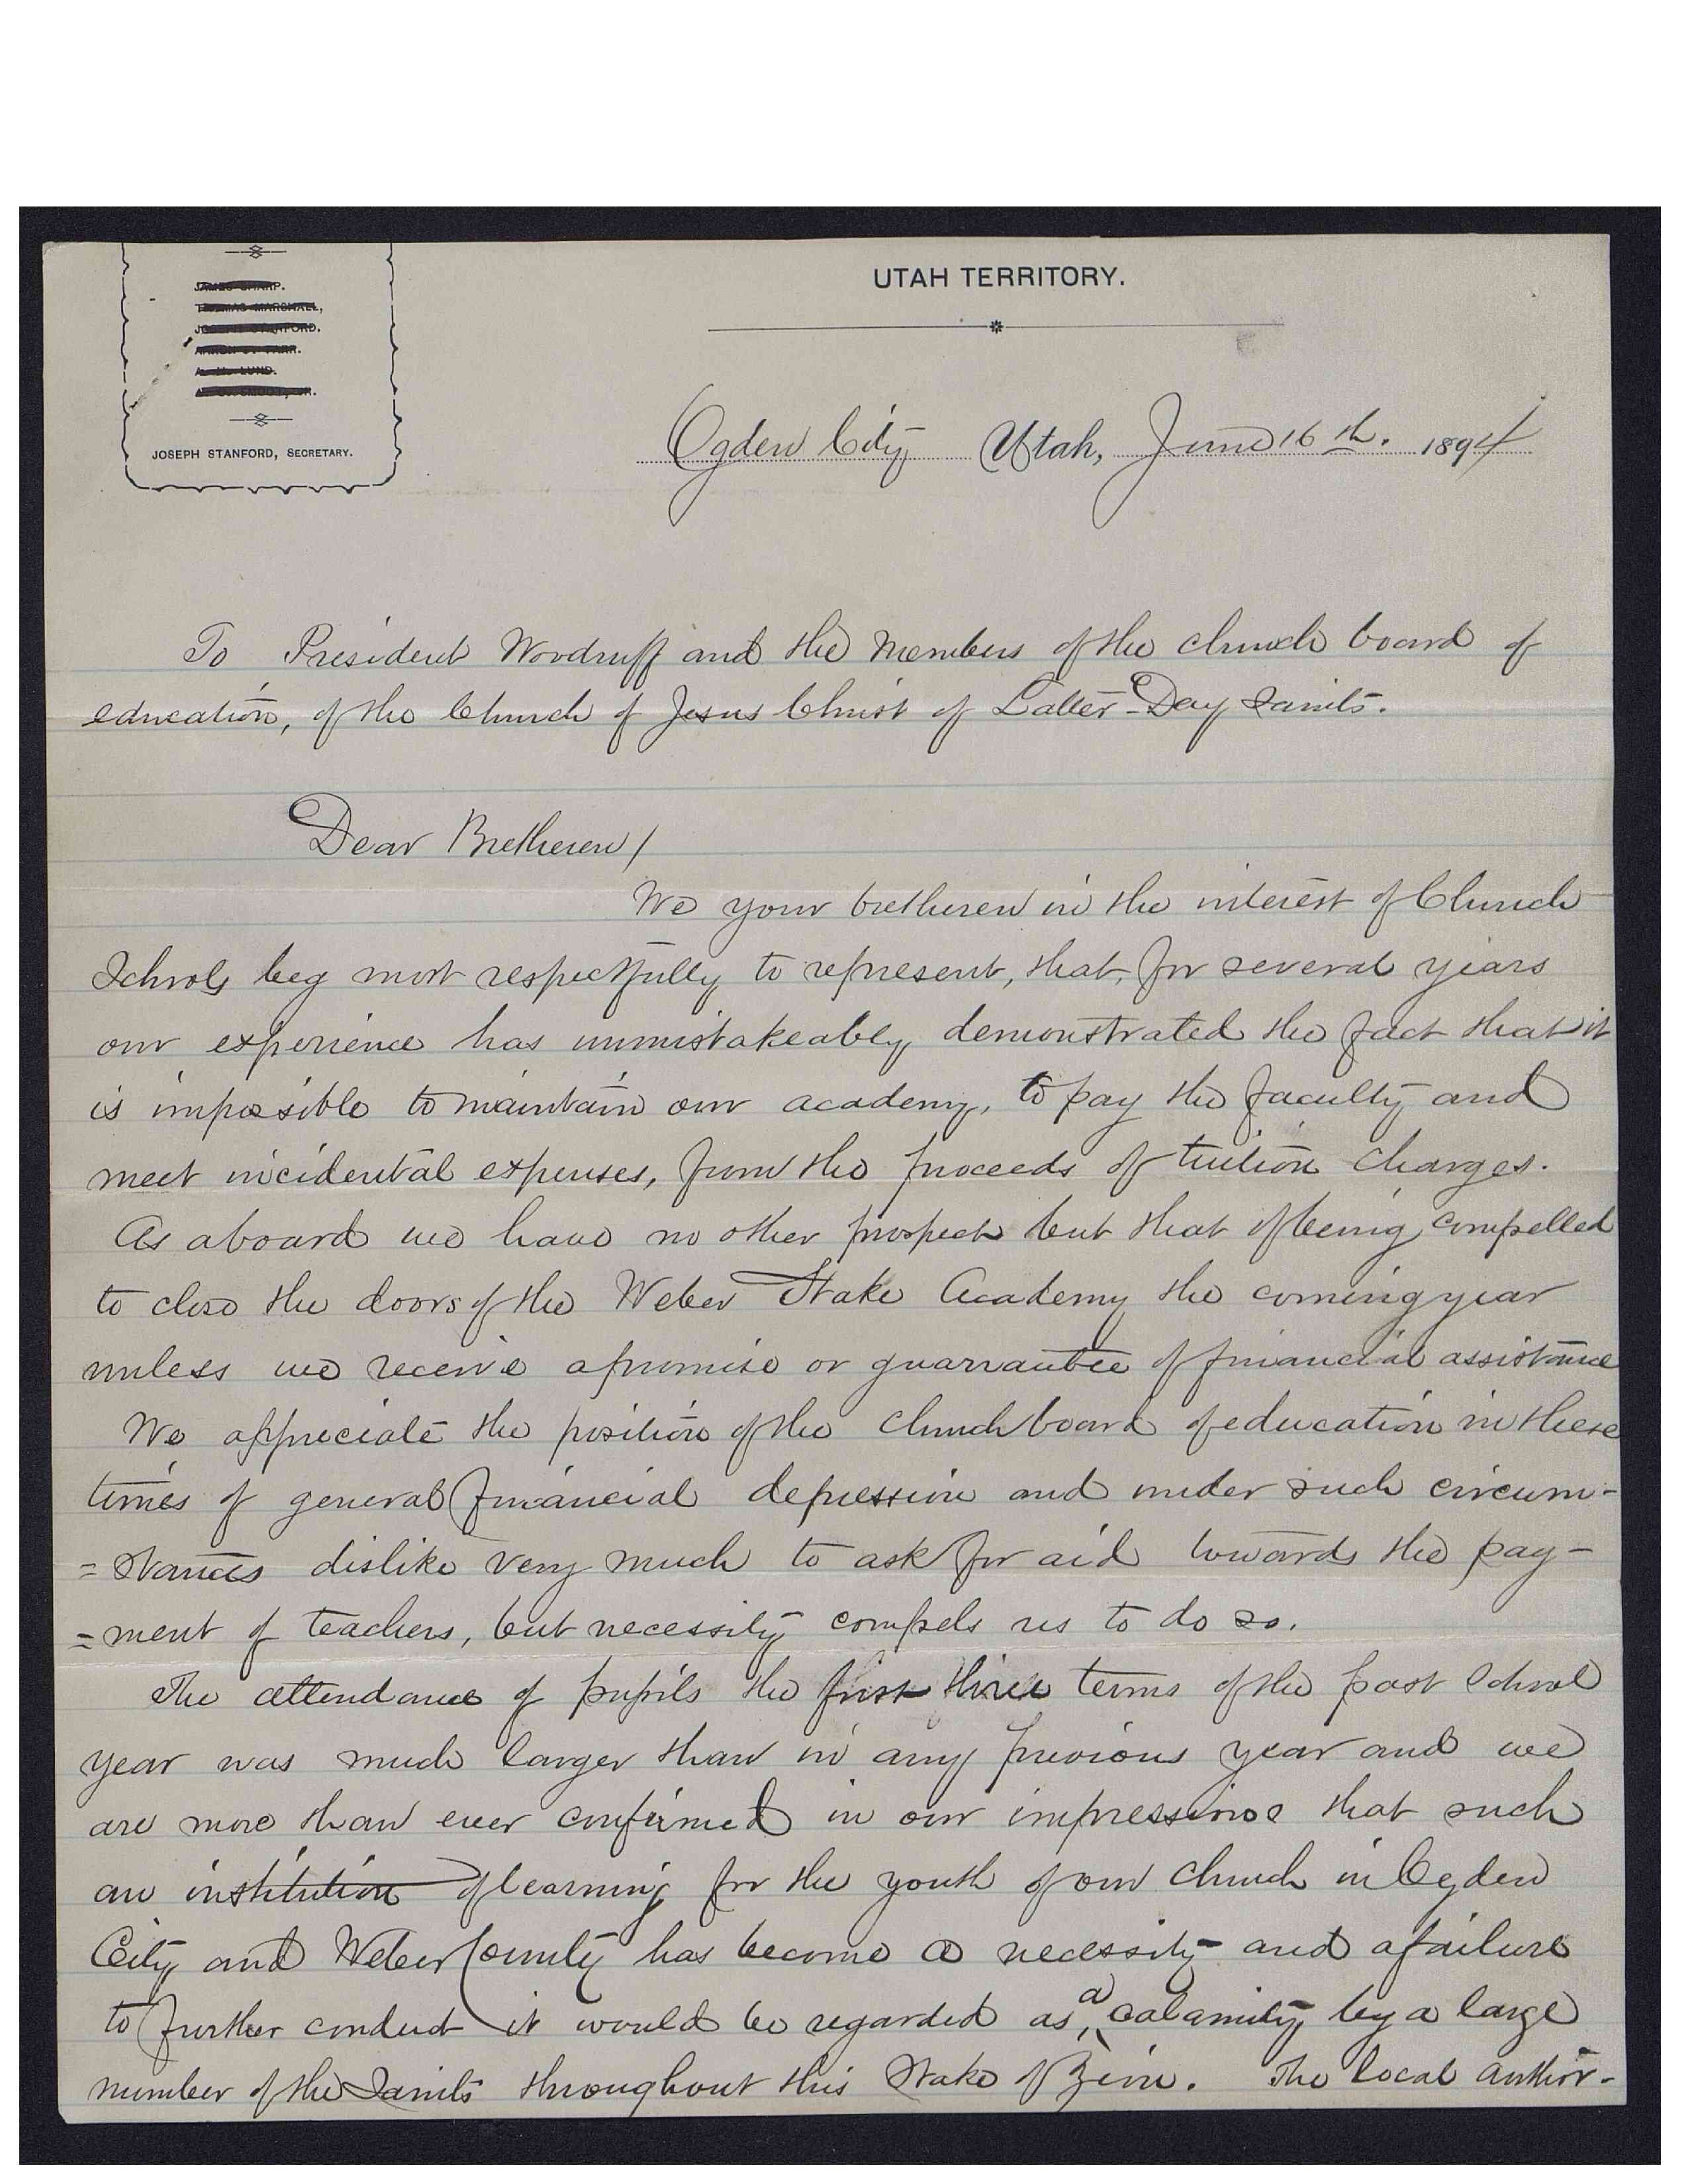 JAMES SHARP.
THOMAS MARSHALL,
JOSEPH STANFORD.
PARR.
LUND.
JOSEPH STANFORD, SECRETARY.
UTAH TERRITORY.
Ogden City Utah, June 16th. 1894
To President Woodruff and the Members of the church board of
education, of the Church of Jesus Christ of Latter-Day Saints.
Dear Bretheren/
We your bretheren in the interest of Church
Schools beg most respectfully to represent, that, for several years
our experience has unmistakeably demonstrated the fact that it
is impossible to maintain our academy, to pay the faculty and
meet incidental expenses, from the proceeds of tuition charges.
As a board we have no other prospect but that of being compelled
to close the doors of the Weber Stake Academy the coming year
unless we receive a promise or guarrantee of financial assistance
We appreciate the position of the Church board of education in these
times of general financial depression and under such circum-
=stances dislike very much to ask for aid towards the pay-
=ment of teachers, but necessity compels us to do so.
The attendance of pupils the first three terms of the past School
year was much larger than in any previous year and we
are more than ever confirmed in our impressions that such
an institution of learning for the youth of our Church in Ogden
City and Weber County has become a necessity and a failure
to further conduct it would be regarded as a calamity by a large
number of the Saints throughout this Stake of Zion. The local author-